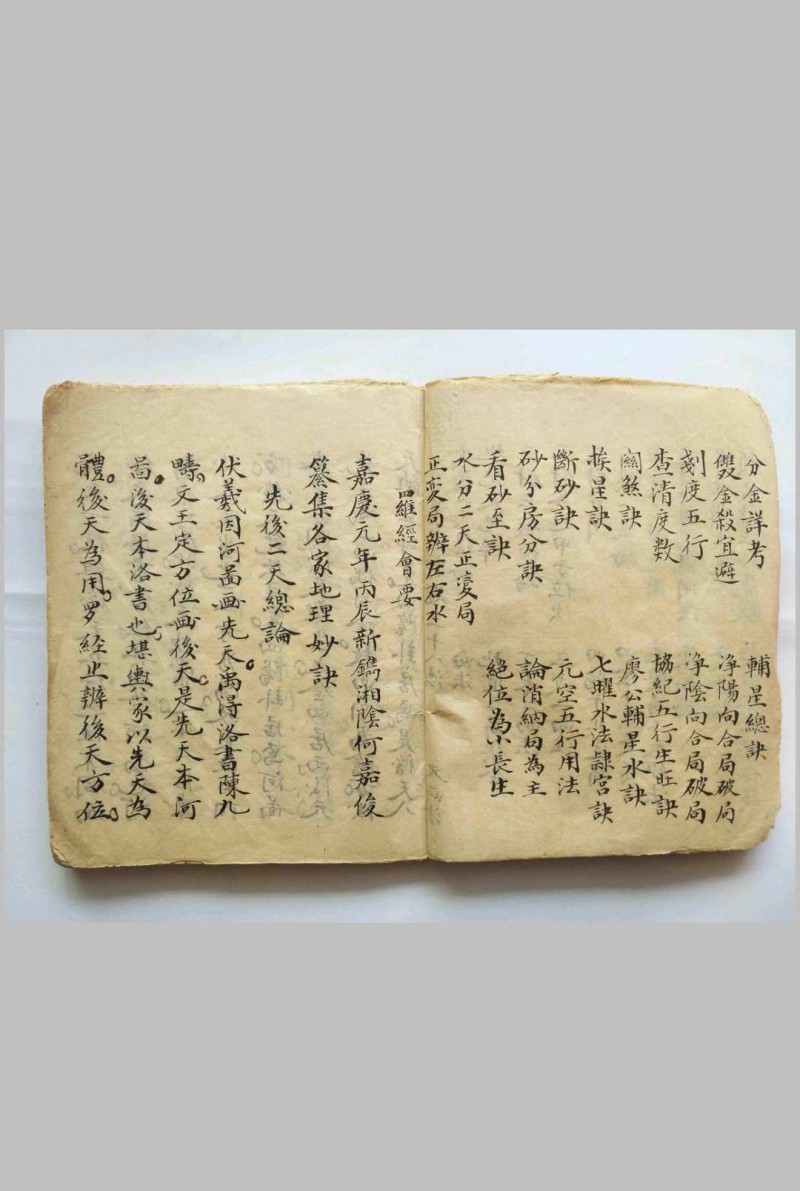 分金詳考　輔星總訣
雙金殺宜避　淨陽向合局破局
刻度五行　淨陰向合局破局
查清度数　協紀五行生旺訣
関煞訣　廖公輔星水訣
挨星訣　七曜水法隷宮訣
斷砂訣　元空五行用法
砂分房分訣　論消納局為主
看砂至訣　絕位為小長生
水分二天正变局
正变局辨左右水
羅經會要
嘉慶元年丙辰新鐫湘陰何嘉俊
纂集各家地理妙訣
先後二天總論
伏羲因河啚画先天。禹得洛書陳九
疇。文王定方位画後天。是先天本河
啚。後天本洛書也。堪輿家以先天為
體。後天為用。罗経止辨後天方位。